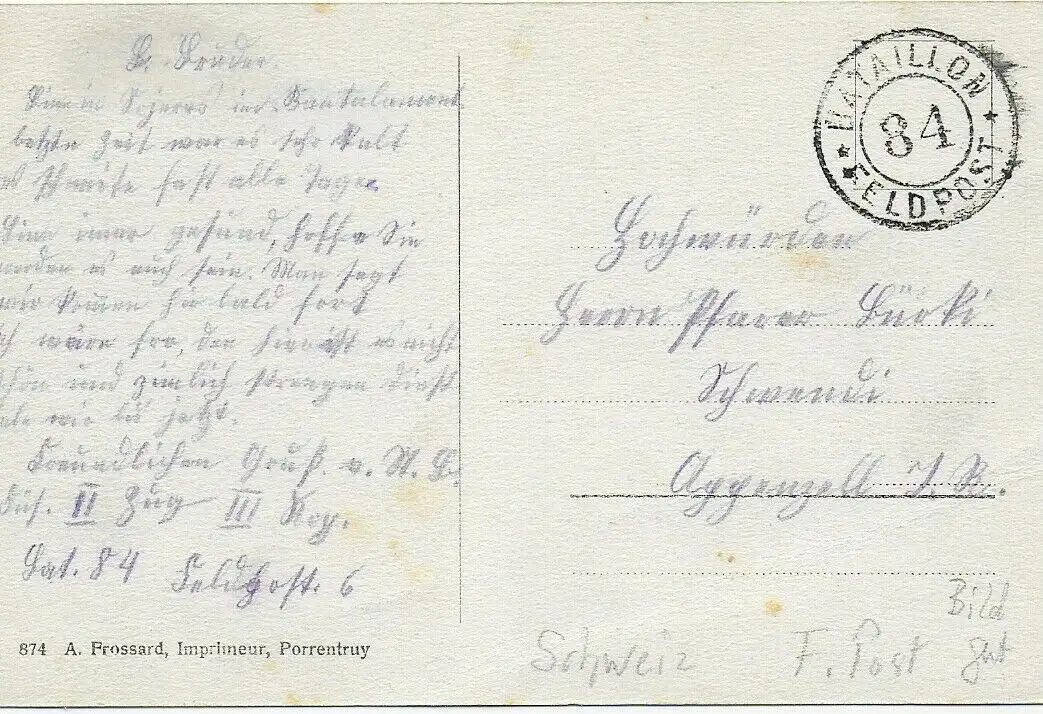 Bruder.
Bin in
letzte Zeit war es sehr Kalt
es schneite fast alle Tage.
Bin imer gesund, hoffe Sie
werden es auch sein. Man sagt
wir komen hir bald fort
ich wäre fro, den hier ist es nicht
schön und zimlich strengen Dinst
als wie bis jetzt.
Freundlichen Gruß. v.
Füs. II Zug III Kop.
Bat. 84 Feldpost. 6
874 A. Frossard, Imprimeur, Porrentruy
BATAILLON
84
* FELDPOST *
Hochwürden
Herrn Pfarer Bürki
Schwendi
Appenzell I. R.
Bild
Schweiz F. Post gut